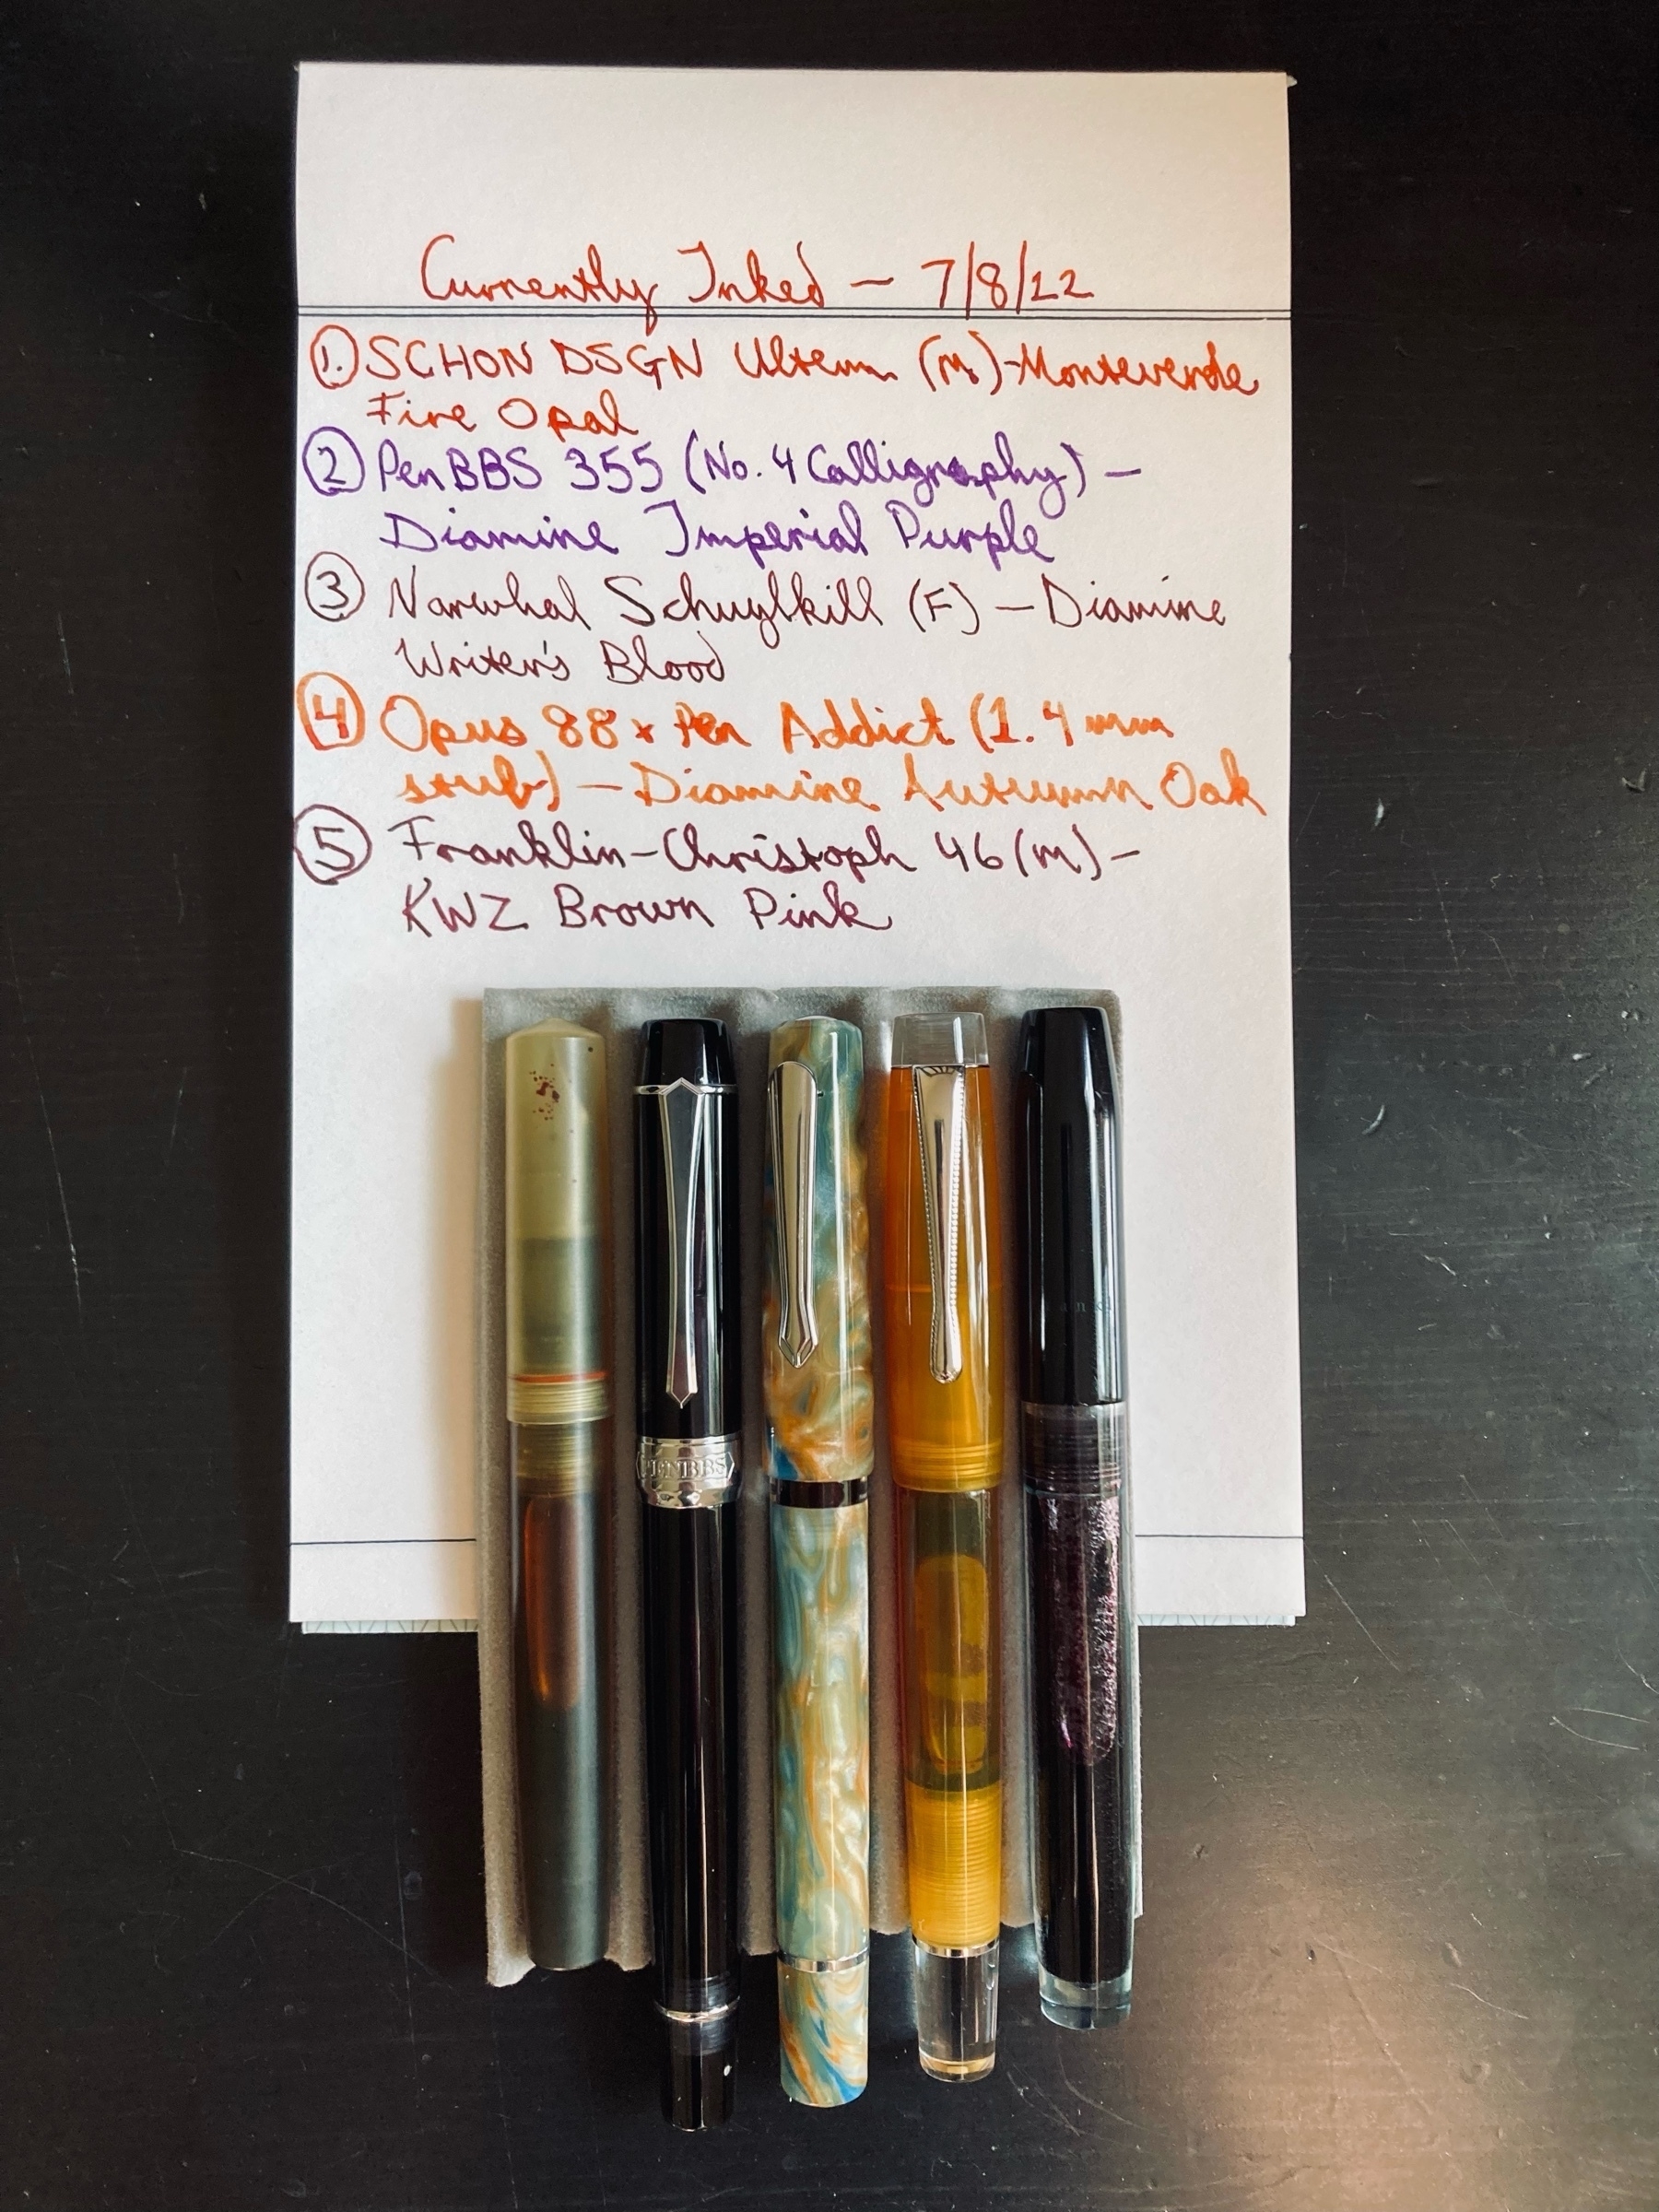 Currently Inked — 7/8/22
1. SCHON DSGN Ultem (M)-Monteverde
Fire Opal
2 PenBBS 355 (No. 4 Calligraphy) —
Diamine Imperial Purple
3 Narwhal Schuylkill (F) — Diamine
Writer's Blood
4 Opus 88 x Pen Addict (1.4 mm
stub) — Diamine Autumn Oak
5 Franklin-Christoph 46 (M) —
KWZ Brown Pink
PENBBS